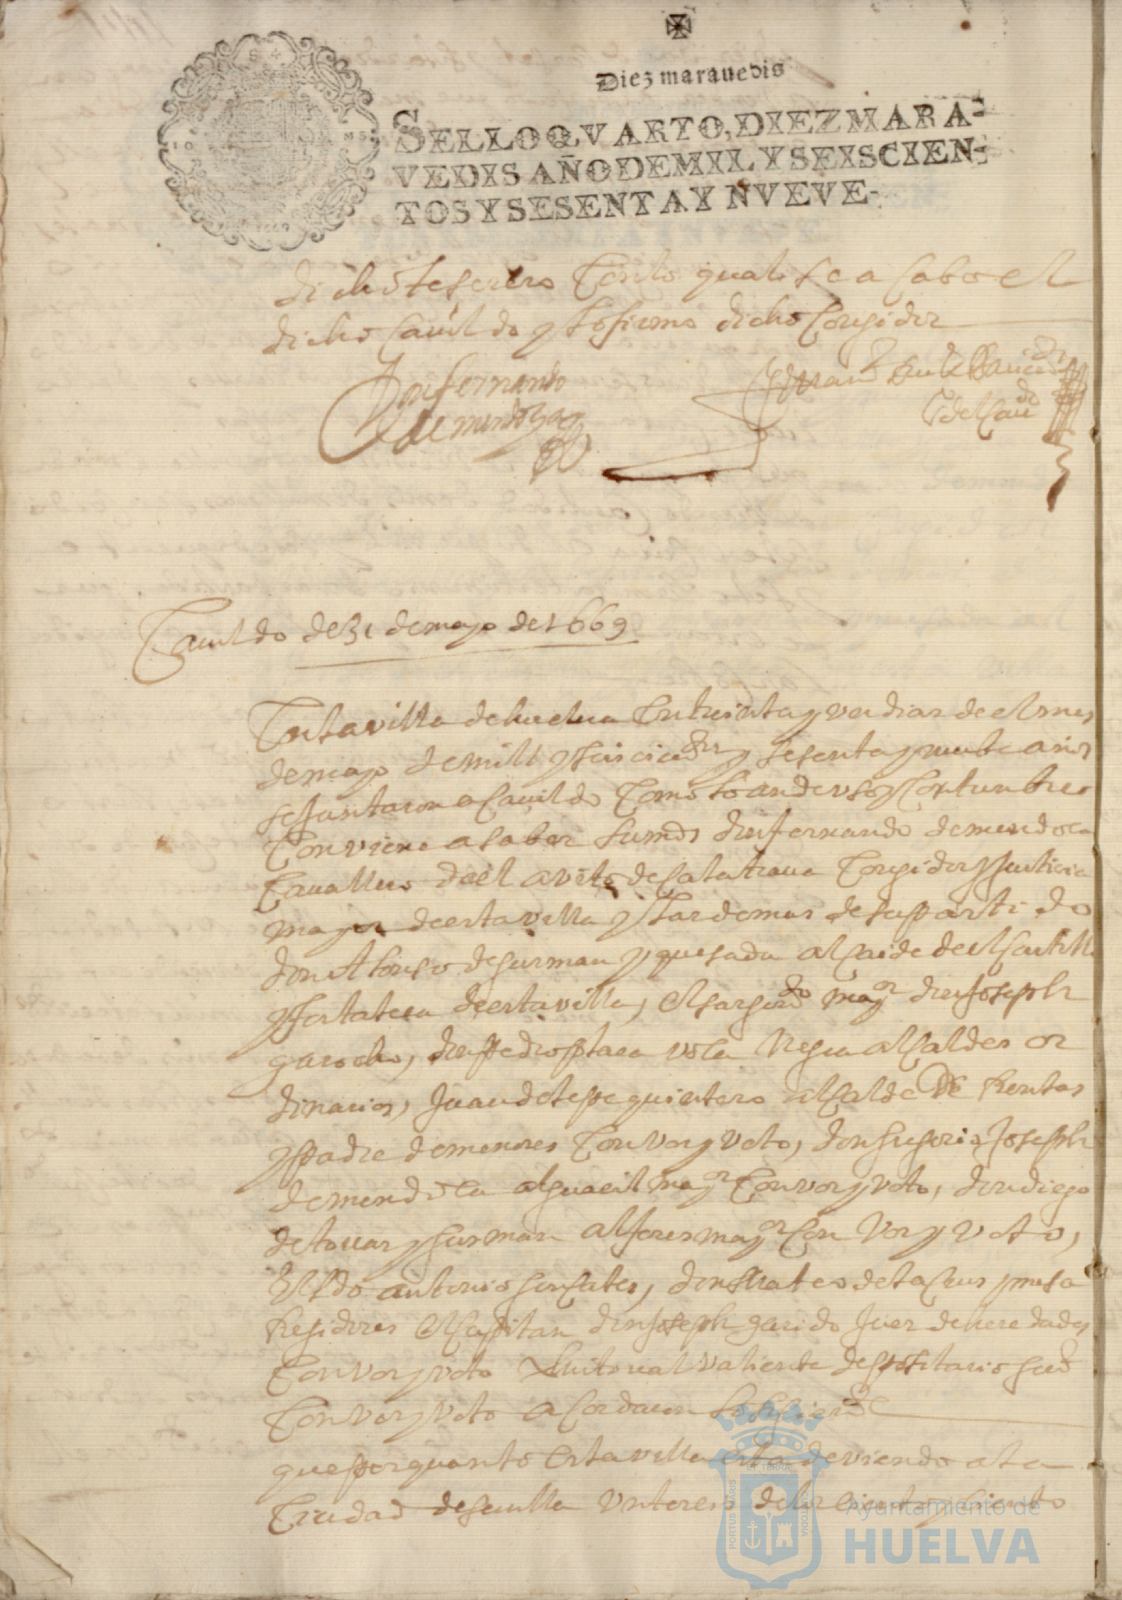 Diez maravedis
SELLO QVARTO, DIEZ MARA-
VEDIS AÑO DE MIL Y SEISCIEN-
TOS Y SESENTA Y NVEVE-
dicho tesorero Con lo qual se acabo el
dicho Cauildo y lo firmo dicho Corregidor
Don fernando
de mendoza
Cauildo de 31 de mayo de 1669
En la villa de huelua En treinta y un dias de el mes
de mayo de mill y seiscientos y sesenta y nuebe años
se juntaron a Cauildo Como lo an de vso y Costumbre
Conviene a saber su md don fernando de mendoça
Cauallero del avito de Calatraua Corregidor y Justicia
mayor de esta villa y las demas de su partido
don Alonso de gusman y quesada alcaide del Castillo
y fortaleza de esta villa, el sargento mayor don Joseph
garocho, don pedro plaza alcaldes or
dinarios, Juan de lepe quintero alcalde de Rentas
y padre de menores Con vos y voto, don gregorio Joseph
de mendoça alguacil mayor Con vos y voto, don diego
de touar y gusman alferes mayor Con vos y voto,
El ldo antonio gonsales, don Mateo de
Regidores el capitan don Joseph garrido Jues de heredades
Con vos y voto valiente depositario
Con vos y voto acordaron lo siguiente
que por quanto esta villa esta deviendo a la
Ciudad de seuilla
PORTUS MARIS
ET TERRAE
CUSTODIA
Ayuntamiento de
HUELVA